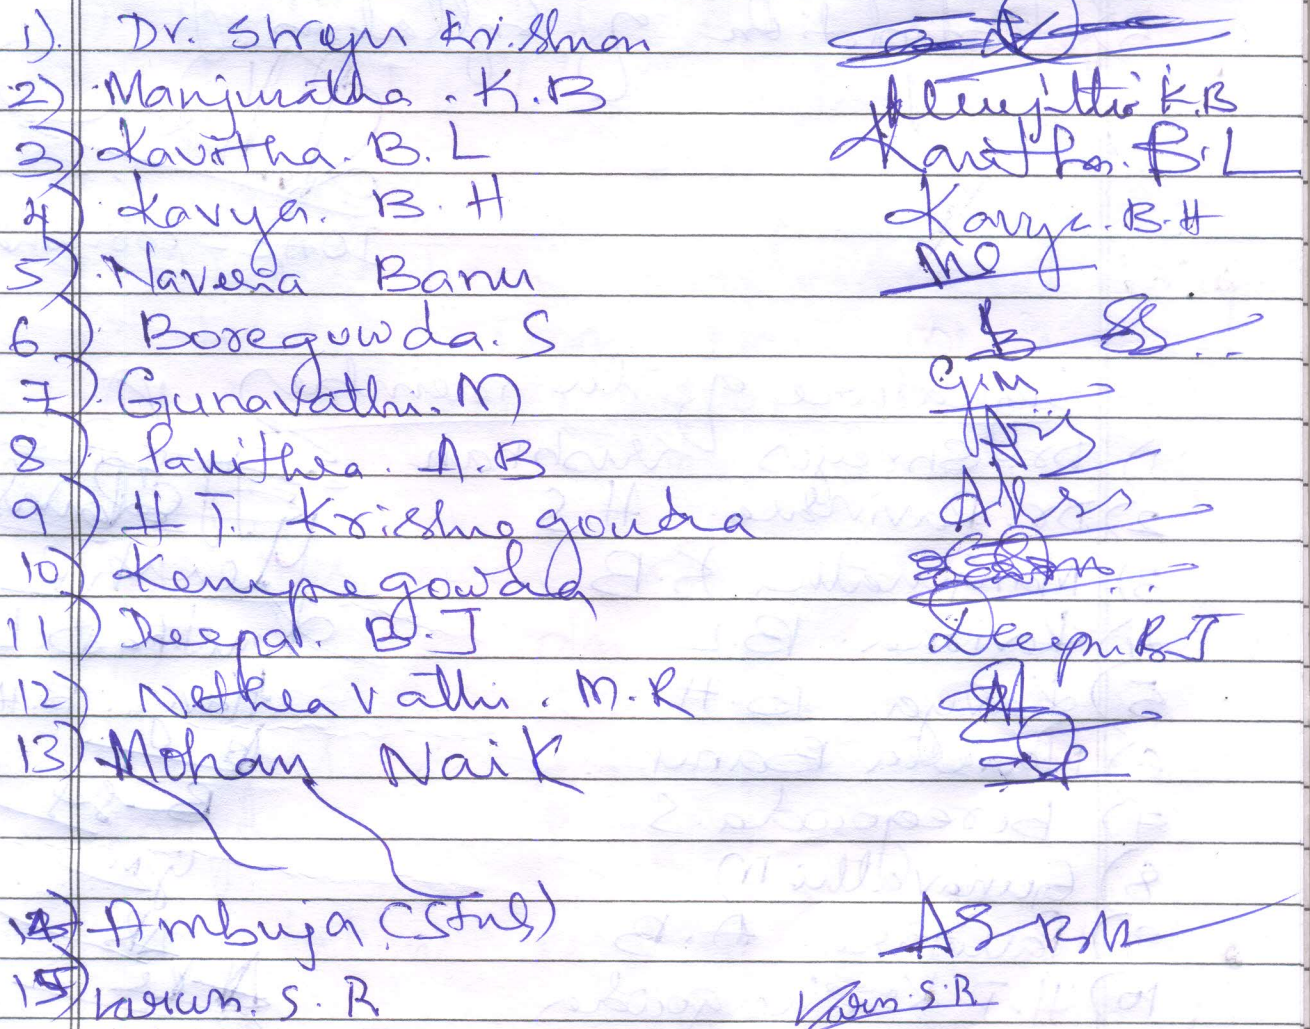 1). Dr. Shreyu Krishnan
2) Manjunatha . K.B K.B
3) Kavitha. B. L Kavitha. B.L
4) Kavya. B. H Kavya. B.H
5) Naveena Banu
6) Boregowda. S
7) Gunavathi. M G.M
8) Pavithra. A.B
9) H T. Krishnegowda
10) Kempegowda
11) Deepa. B.J Deepa B J
12) Nethravathi. M.R
13) Mohan Naik
14) Ambuja
15) Varun. S. R Varun. S.R